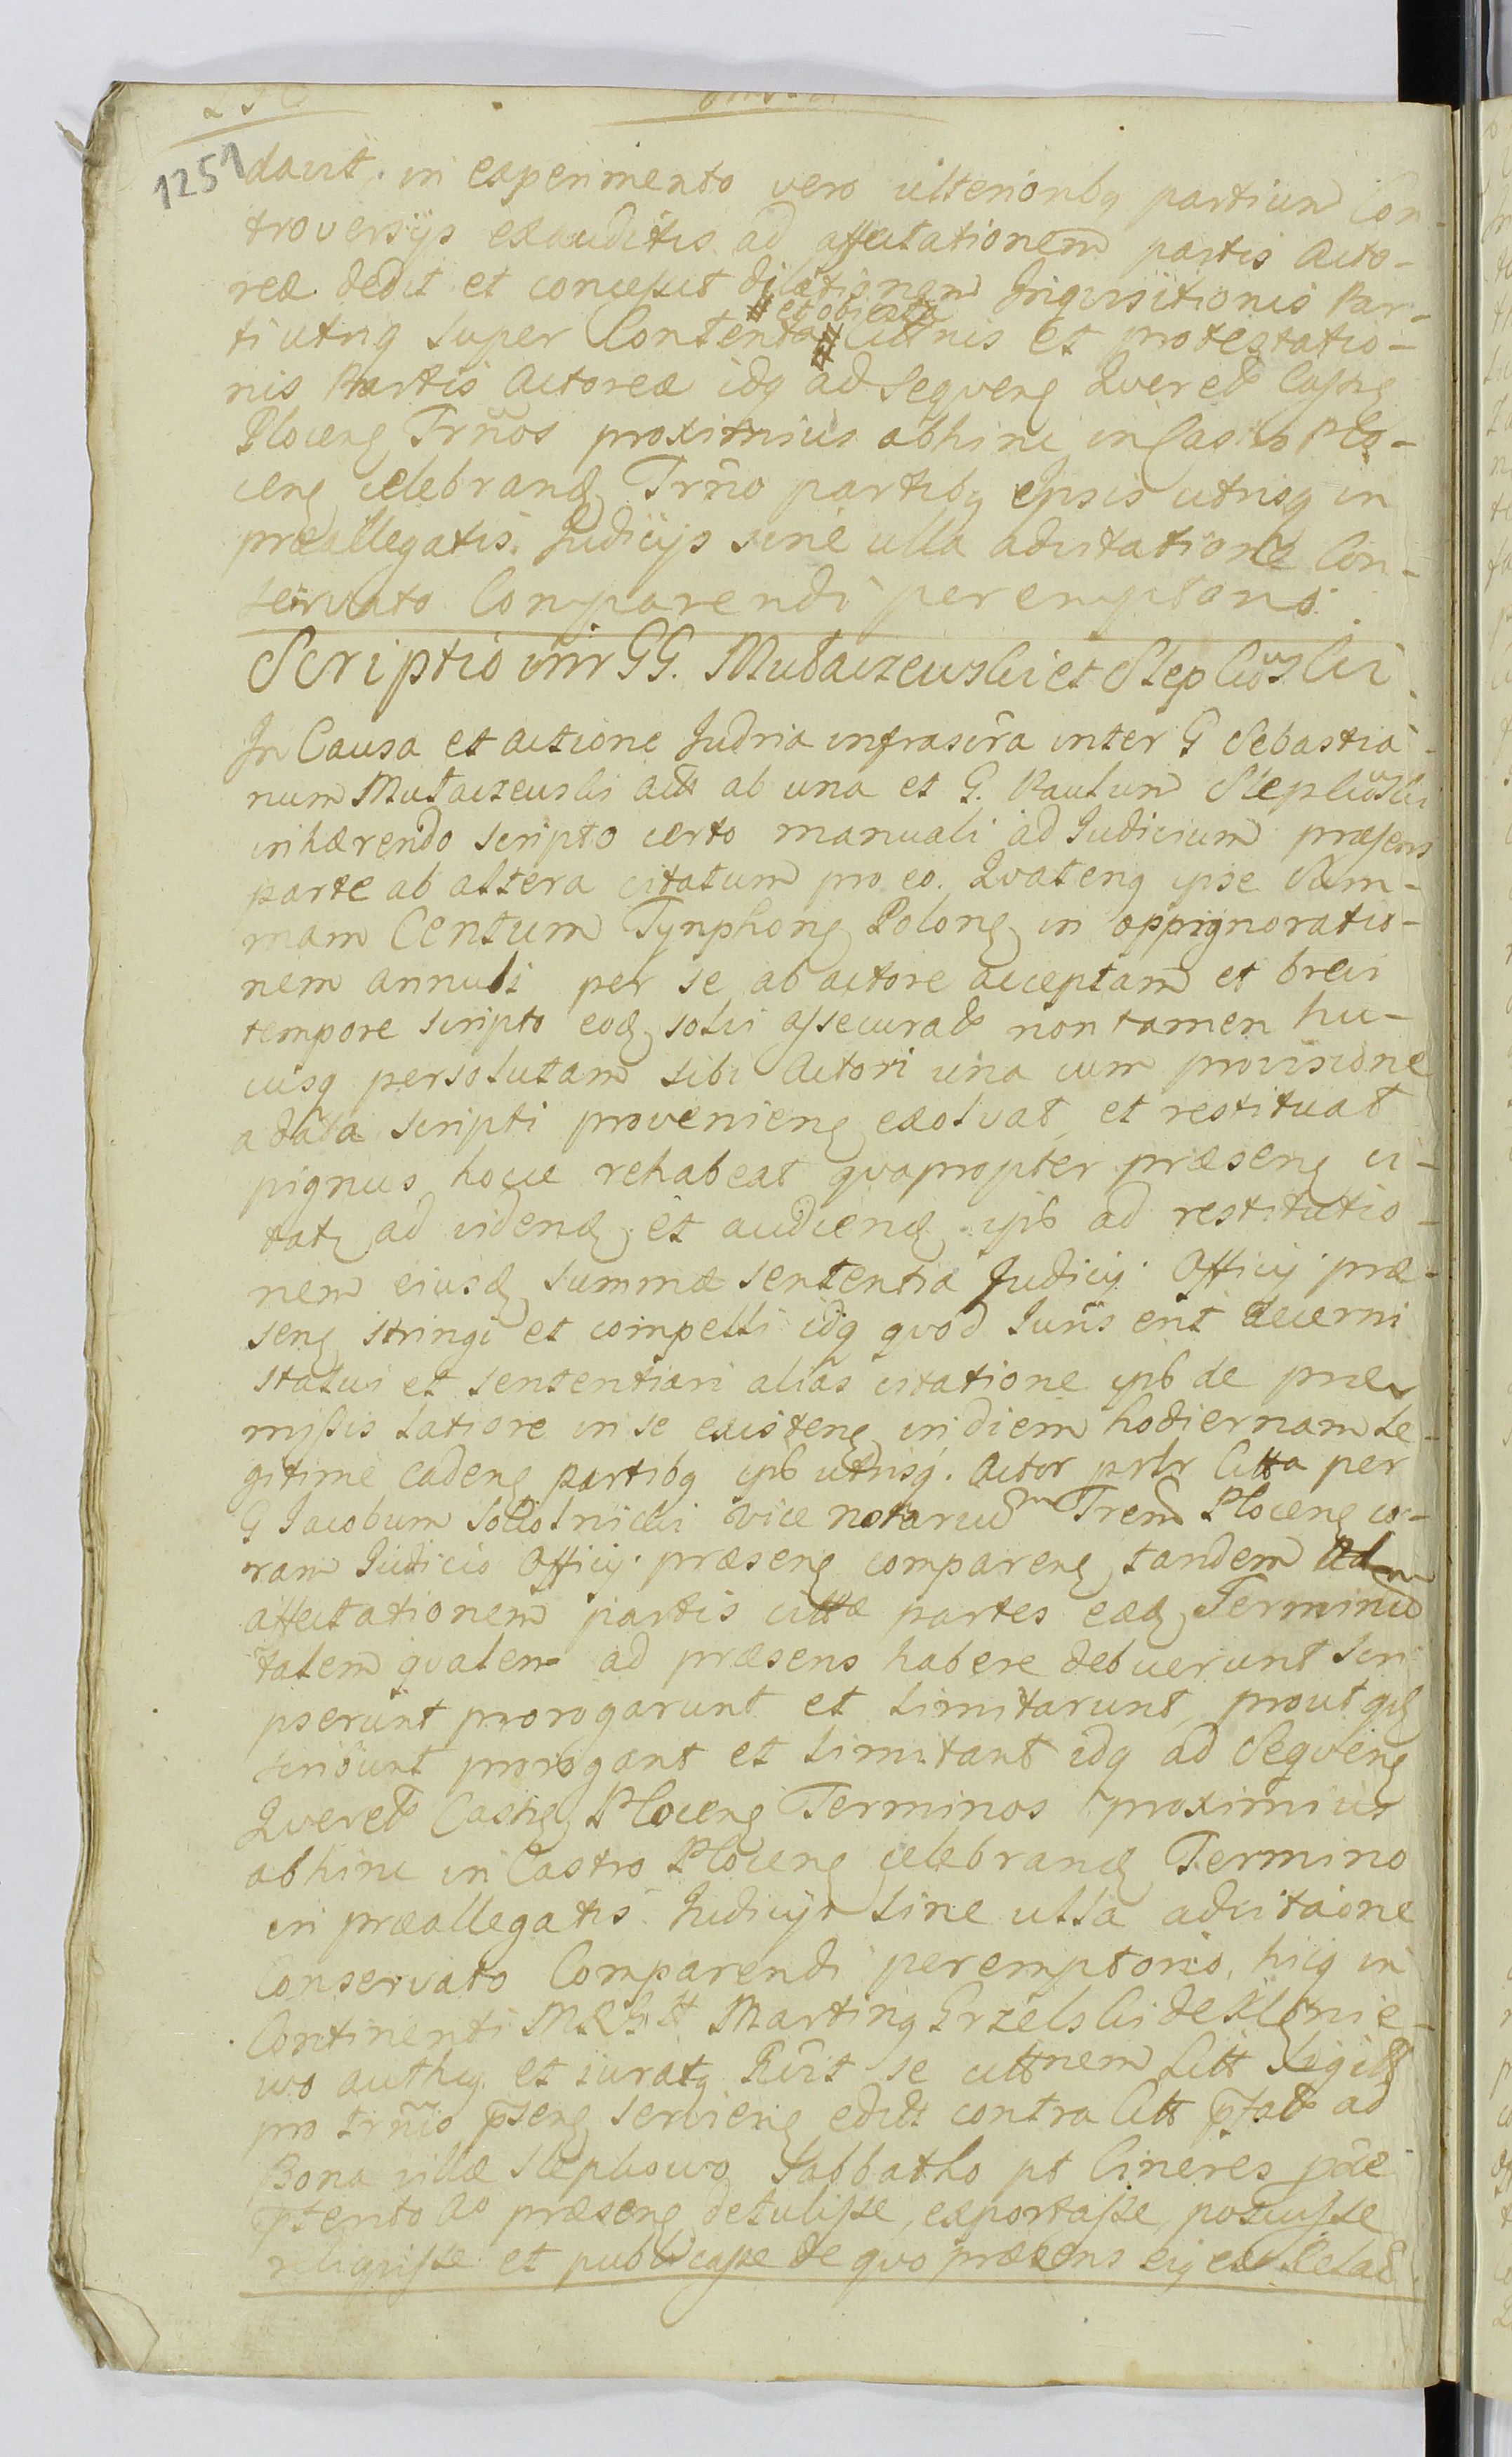 1251
davit. in experimento vero ulterioribq partium Con-
troversijs exauditis ad affectationem partis Acto-
reæ dedit et concessit dilationem Inquisitionis Par-
# et obiecta
ti utriq super Contenta # Cittnis et protestatio-
nis Partis Actoreæ idq ad seqveng Qverel Castrg
Ploceng Trños proximius abhinc in Castro Plo-
ceng celebrand Trño partibq ipsis utrisq in
præallegatis Judicijs sine ulla adcitatione Con-
servato Comparendi peremptorio.
Scriptio intr GG. Mutaczewski et Slepkowski
In Causa et actione Judria infrascra inter G Sebastia-
num Mutaczewski act ab una et G. Paulum Slepkowski
inhærendo scripto certo manuali ad Judicium præsens
parte ab altera citatum pro eo. Qvateng ipse Sum-
mam Centum Tynphong Polong in oppignoratio-
nem annuli per se ab actore acceptam et brevi
tempore scripto eod solvi assecurat non tamen hu-
cusq persolutam sibi Actori una cum provisione
a data scripti provenieng exolvat et restituat
pignus hocce rehabeat qvapropter præseng ci-
tat ad videnđ et audienđ ipß ad restitutio-
nem eiusđ summæ sententia Judicij Officij præ-
seng stringi et compelli idq qvod Juris erit decerni
statui et sententiari alias citatione ipß de præ-
missis latiore in se existeng in diem hodiernam le-
gitime cadeng partibq ipß utrisq. Actor prlr Citta per
G Jacobum Sokolnicki vice notariũ Trem Ploceng co-
ram Judicio Officij præseng compareng tandem ad
affectationem partis cittæ partes eæđ Terminũ
talem qvalem ad præsens habere debuerunt scri
pserunt prorogarunt et limitarunt prout qß
scribunt prorogant et limitant idq ad Seqveng
Qverel Castrg Ploceng Terminos proximius
abhinc in Castro Ploceng celebranđ Termino
in præallegatis Judicijs sine ulla adcitaõne
Conservato Comparendi peremptorio, hicq in
Continenti Martinq Grzelski de Klonie-
wo authcq et iuratq Rcit se cittnem Litt Sigill
pro trñio pseng servieng edit contra Citt pstat ad
Bona villæ Slepkowo Sabbatho pt Cineres pde
præseng detulisse, exportasse, posuisse
reliqvisse et publicasse de qvo præsens eiq est Relač